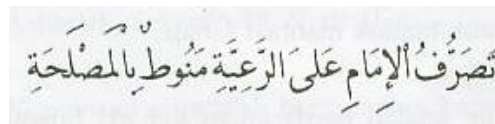 تَصَرُّفُ الْإِمَامِ عَلَى الرَّعِيَّةِ مَنُوطٌ بِالْمَصْلَحَةِ